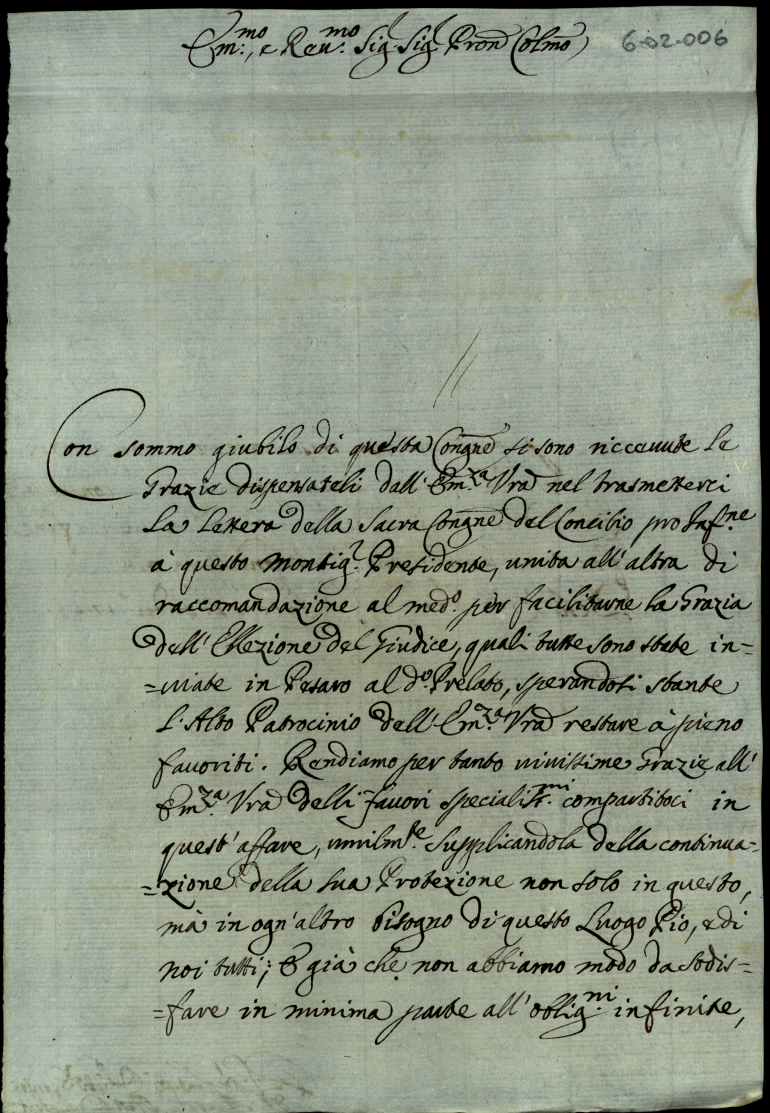 Em:mo, e Reu:mo Sig.r Sig.r Pron Colmo
6-02-006
Con sommo giubilo di questa Congne si sono riceuute le
Grazie dispensateli dall'Em.za Vra nel trasmetterci
La Lettera della Sacra Congne del Concilio pro Inf.ne
à questo Monsig.r Presidente, unita all'altra di
raccomandazione al med.o per facilitarne la Grazia
dell'Ellezione del Giudice, quali tutte sono state in=
=uiate in Pesaro al d.o Prelato, sperandosi stante
L'Alto Patrocinio dell'Em.za Vra restare à pieno
fauoriti. Rendiamo per tanto uiuissime Grazie all'
Em.za Vra delli fauori specialiss.mi compartitoci in
quest'affare, umilm.te Supplicandola della continua=
=zione della sua Protezione non solo in questo,
mà in ogn'altro Bisogno di questo Luogo Pio, e di
noi tutti; E già che non abbiamo modo da sodis=
=fare in minima parte all'oblig.ni infinite,